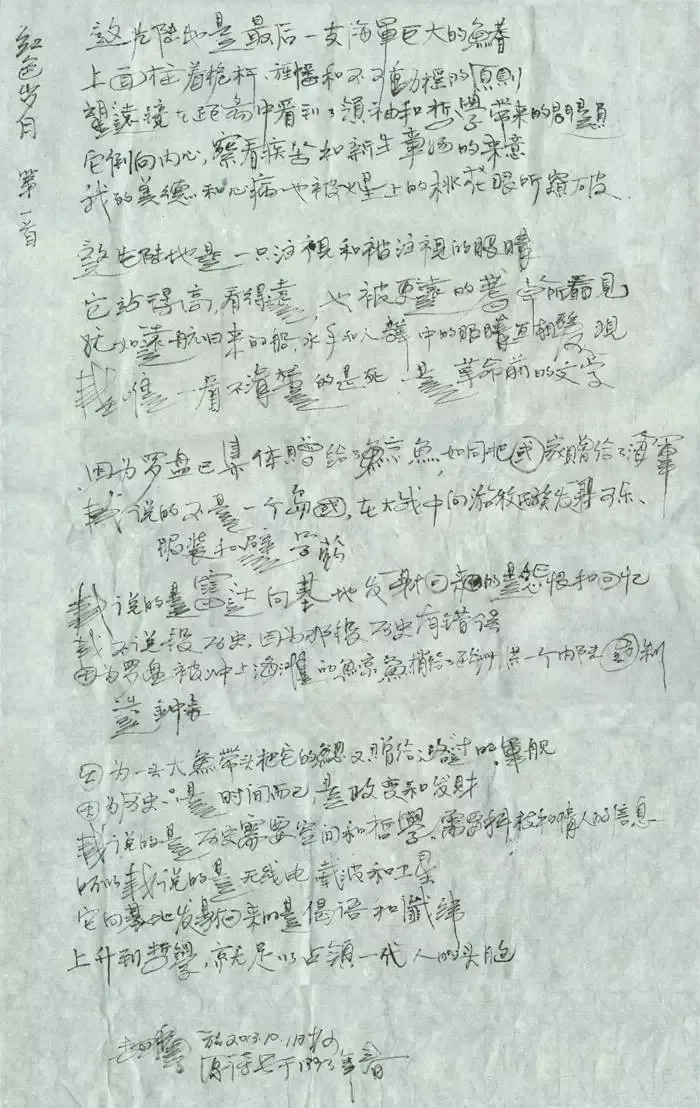 红色岁月 第一首
这片陆地是最后一支海軍巨大的魚脊
上面挂着桅杆、旌幡和不可動摇的原則
望遠镜在距离中看到了領袖和哲學带来的問題
它倒向内心,察看疾苦和新生章汤的来意
我的美德和心病也被火星上的桃花眼所窺破.
這片陆地是一只注視和被注視的眼睛
它站得高,看得遠,也被更遠的善
就如遠航归来的船、水手和人群中的眼睛互相發現
載 一看不清楚的是死,是革命前的文学
因为罗盘已集体贈给了鯨魚,如同把國家贈给了海軍
載说的不是一个岛國,在大战中向游牧民族发射可乐、
服装和
載说的是雷达向基地发射回来的是怨恨和回忆
載不说殁历史,因为那段历史有错误
因为罗盘被冲上海灘的鯨魚捎给了 某一个内陆國制
造 鐘表
因为一头大魚带头把它的鰓又贈给了路过的軍舰
因为历史只是时间而已,是政变和发財
載说的是历史需要空间和哲學,需要科技和情人的信息
所以載说的是无线电載波和卫星
它向基地发射回来的是偈语和讖緯
上升到哲學,就足以占領一代人的头脑
於2013.10.1
于1993年